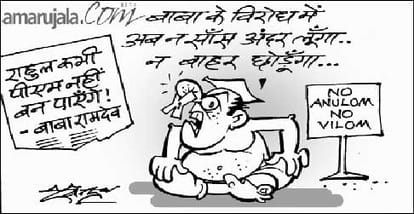 amarujala.com
BETA
राहुल कभी
पीएम नहीं
बन पाएंगे!
- बाबा रामदेव
बाबा के विरोध में
अब न साँस अंदर लूँगा..
न बाहर छोड़ूँगा...
NO
ANULOM
NO
VILOM